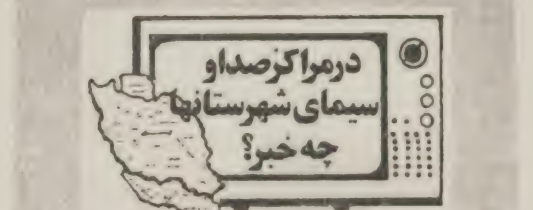 درمراکزصداو
سیمای شهرستانها
چه خبر؟